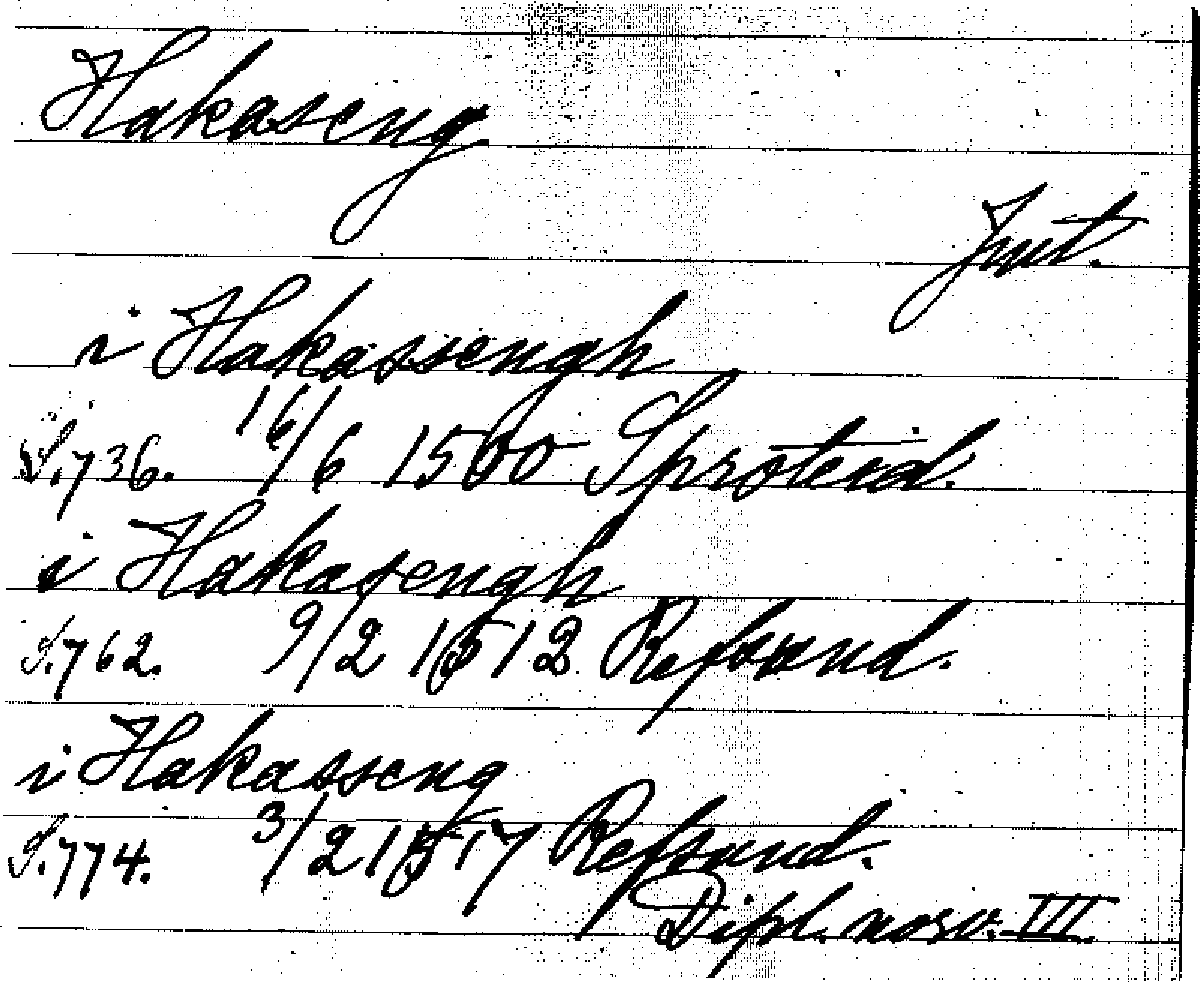 Hakaseng
Jmt.
i Hakassengh
S. 736. 16/6 1500 Sproteid.
i Hakasengh
S. 762. 9/2 1512 Refsund.
i Hakasseng
S. 774. 3/2 1517 Refsund.
Dipl. norv. III.